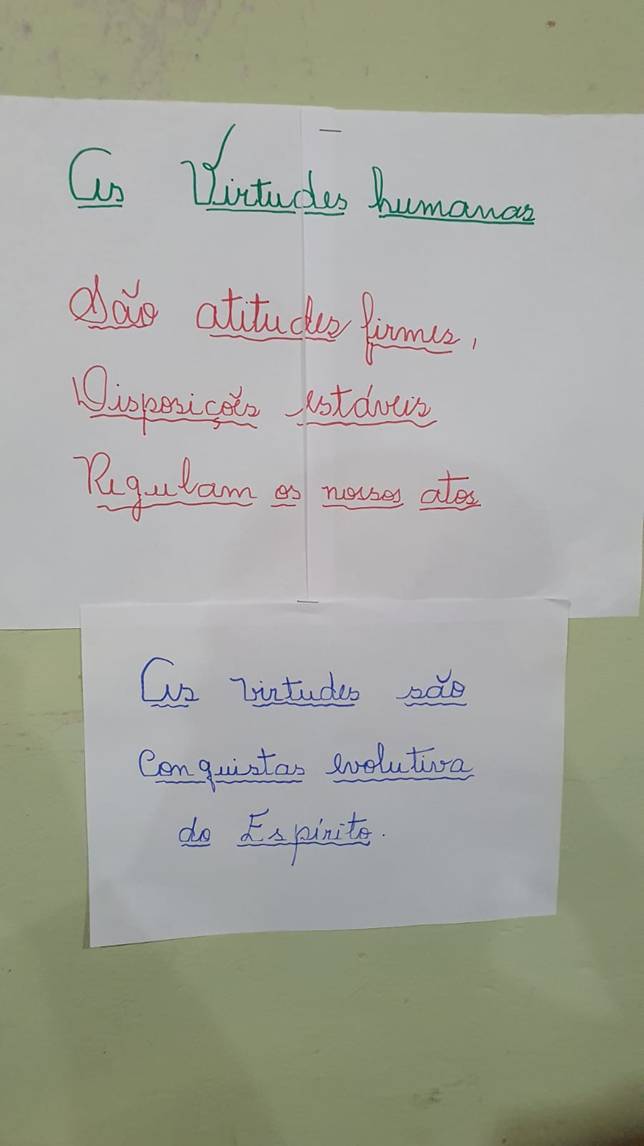 As Virtudes humanas
São atitudes firmes,
Disposições estáveis
Regulam os nossos atos
As virtudes são
Conquistas evolutiva
do Espírito.